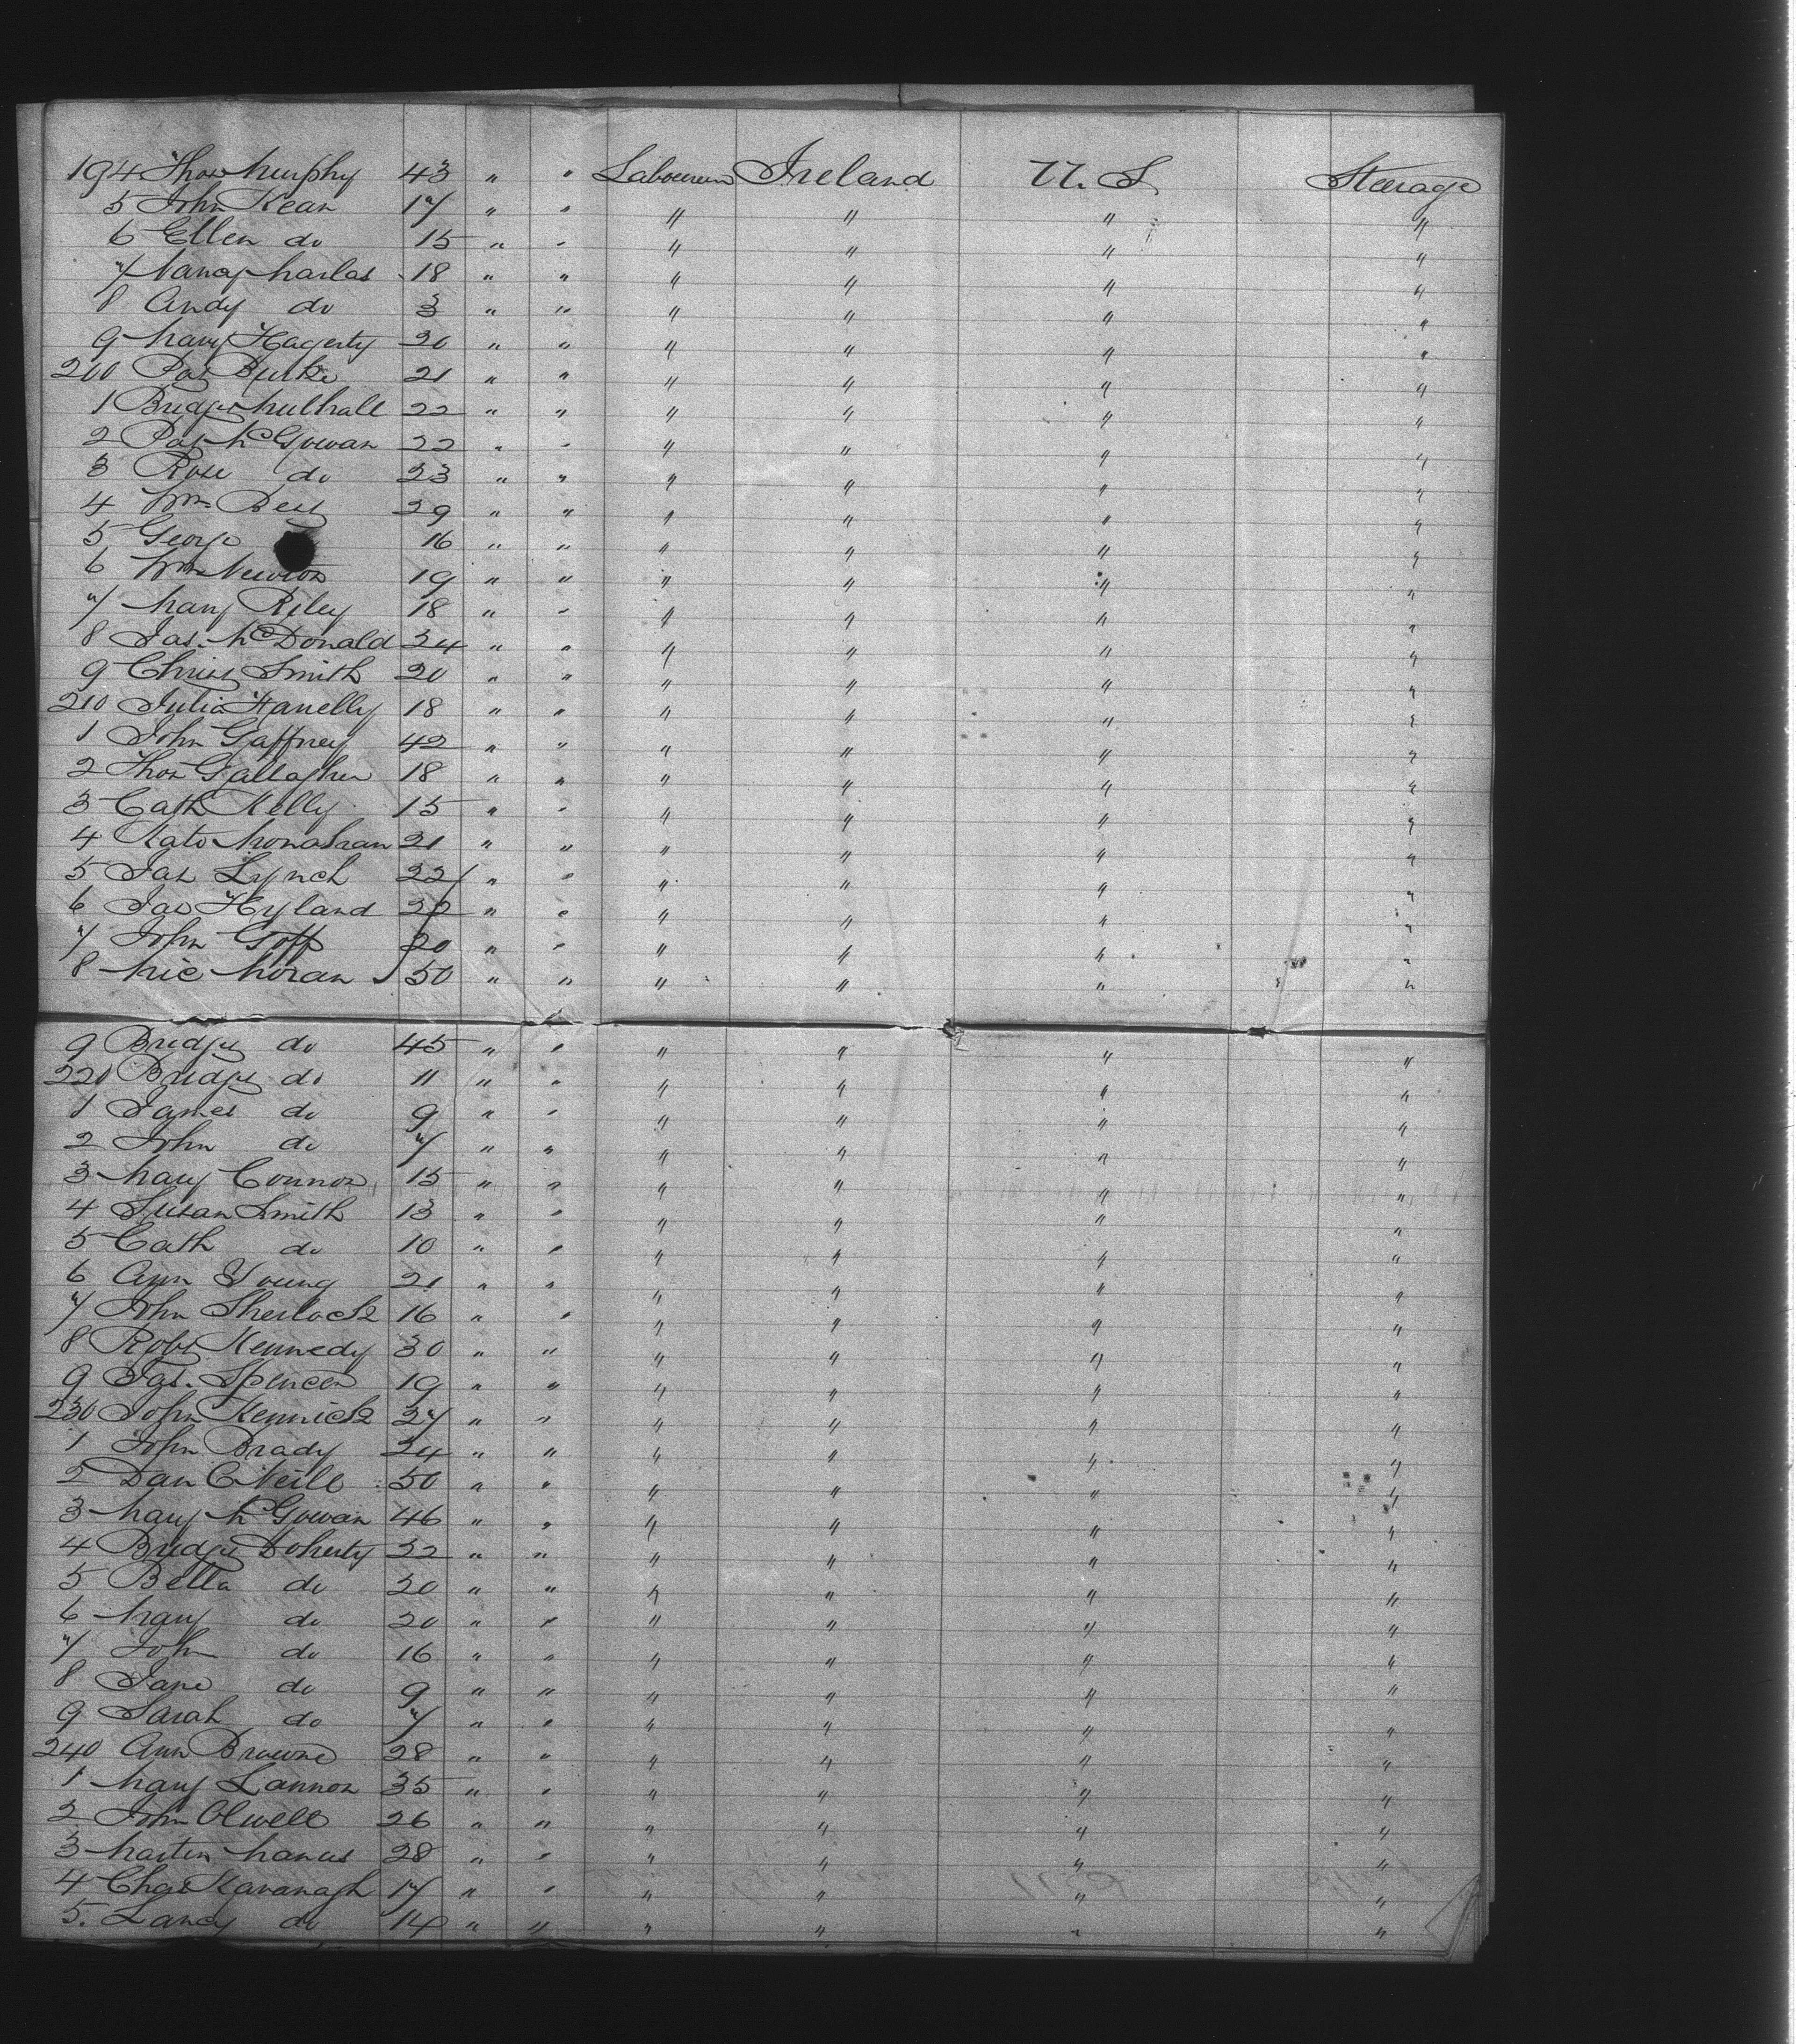 194 Thos Murphy 43 " " Labourers Ireland U. S. Steerage
5 John Kean 17 " " " " " "
6 Ellen do 15 " " " " " "
7 Nancy 18 " " " " " "
8 Andy do 3 " " " " " "
9 Mary Hagerty 20 " " " " " "
200 Pat Burke 21 " " " " " "
1 Bridget Mulhall 22 " " " " " "
2 Pat McGowan 22 " " " " " "
3 Rose do 23 " " " " " "
4 Wm Best 29 " " " " " "
5 George 16 " " " " " "
6 Wm Newton 19 " " " " " "
7 Mary Riley 18 " " " " " "
8 Jas. McDonald 24 " " " " " "
9 Christ Smith 20 " " " " " "
210 Julia 18 " " " " " "
1 John Gaffney 42 " " " " " "
2 Thos Gallagher 18 " " " " " "
3 Cath Kelly 15 " " " " " "
4 Kate Monahan 21 " " " " " "
5 Jas Lynch 22 " " " " " "
6 Jas Hyland 22 " " " " " "
7 John Goff 20 " " " " " "
8 Mic Moran 50 " " " " " "
9 Bridget do 45 " " " " " "
220 Bridget do 11 " " " " " "
1 James do 9 " " " " " "
2 John do 7 " " " " " "
3 Mary Connor 15 " " " " " "
4 Susan Smith 13 " " " " " "
5 Cath do 10 " " " " " "
6 Ann Young 21 " " " " " "
7 John Sherlock 16 " " " " " "
8 Robt Kennedy 30 " " " " " "
9 Jas. Spencer 19 " " " " " "
230 John Kennick 27 " " " " " "
1 John Brady 24 " " " " " "
2 Dan O'Neill 50 " " " " " "
3 Mary McGowan 46 " " " " " "
4 Bridget Doherty 22 " " " " " "
5 Bella do 20 " " " " " "
6 Mary do 20 " " " " " "
7 John do 16 " " " " " "
8 Jane do 9 " " " " " "
9 Sarah do 7 " " " " " "
240 Ann Browne 28 " " " " " "
1 Mary Lannon 35 " " " " " "
2 John Olwell 26 " " " " " "
3 Martin Manus 28 " " " " " "
4 Chas Kavanagh 17 " " " " " "
5. Lancy do 14 " " " " " "